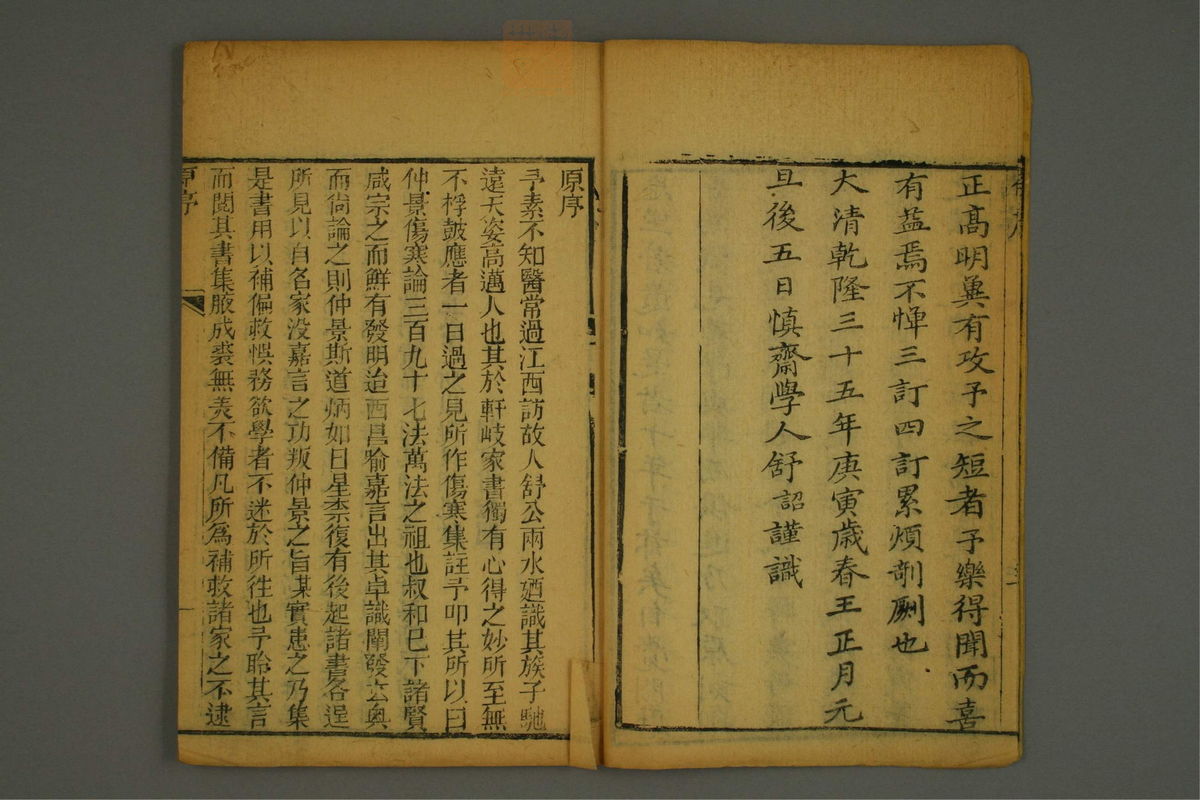 正高明冀有攻予之短者予樂得聞而喜
有益焉不憚三訂四訂累煩剞劂也
大清乾隆三十五年庚寅歲春王正月元
旦後五日慎齋學人舒詔謹識
原序
予素不知醫常過江西訪故人舒公兩水廼識其族子馳
遠天姿高邁人也其於軒岐家書獨有心得之妙所至無
不桴鼓應者一日過之見所作傷寒集註予叩其所以曰
仲景傷寒論三百九十七法萬法之祖也叔和已下諸賢
咸宗之而鮮有發明迨西昌喻嘉言出其卓識闡發玄奥
而尚論之則仲景斯道炳如日星柰復有後起諸書各逞
所見以自名家没嘉言之功叛仲景之旨某實患之乃集
是書用以補偏救悞務欲學者不迷於所徃也予聆其言
而閲其書集腋成裘無羙不備凡所為補救諸家之不逮
原序